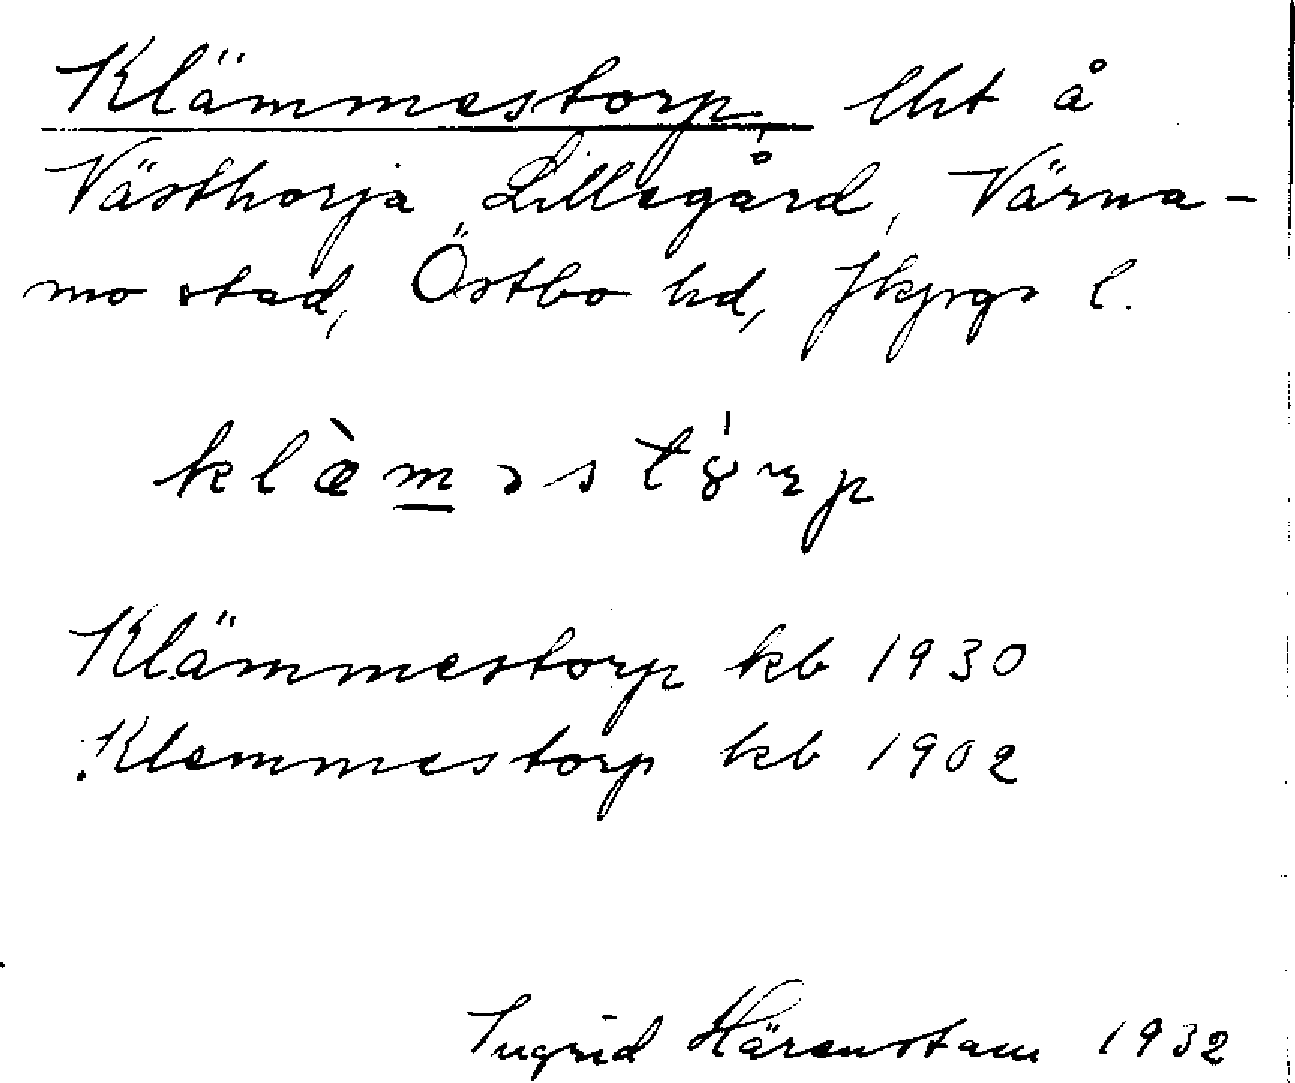 Klämmestorp, lht å
Västhorja Lillegård, Värna-
mo stad, Östbo hd, Jkpgs l.
klæ̀mɔstȣ́rp
Klämmestorp kb 1930
Klemmestorp kb 1902
Ingrid Härenstam 1932